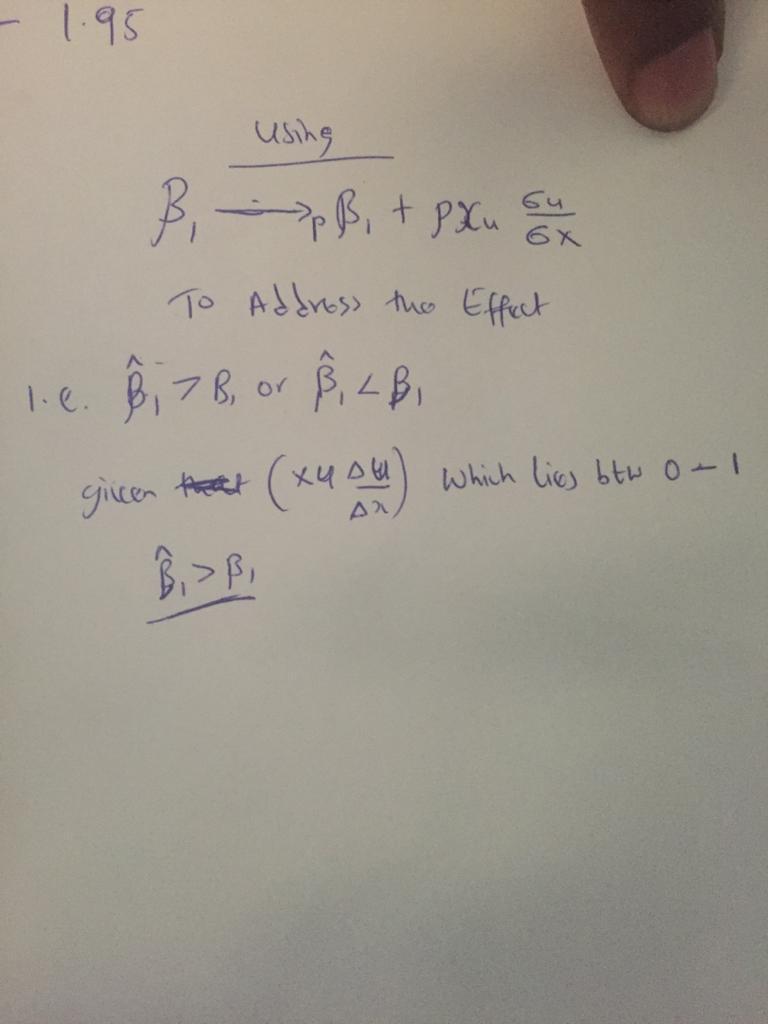 - 1.95
Using
β₁ ⟶ₚ β₁ + ρXᵤ σu/σx
To Address the Effect
I.e. β̂₁ > β₁ or β̂₁ < β₁
given (xu Δu/Δx) which lies btw 0 - 1
β̂₁ > β₁